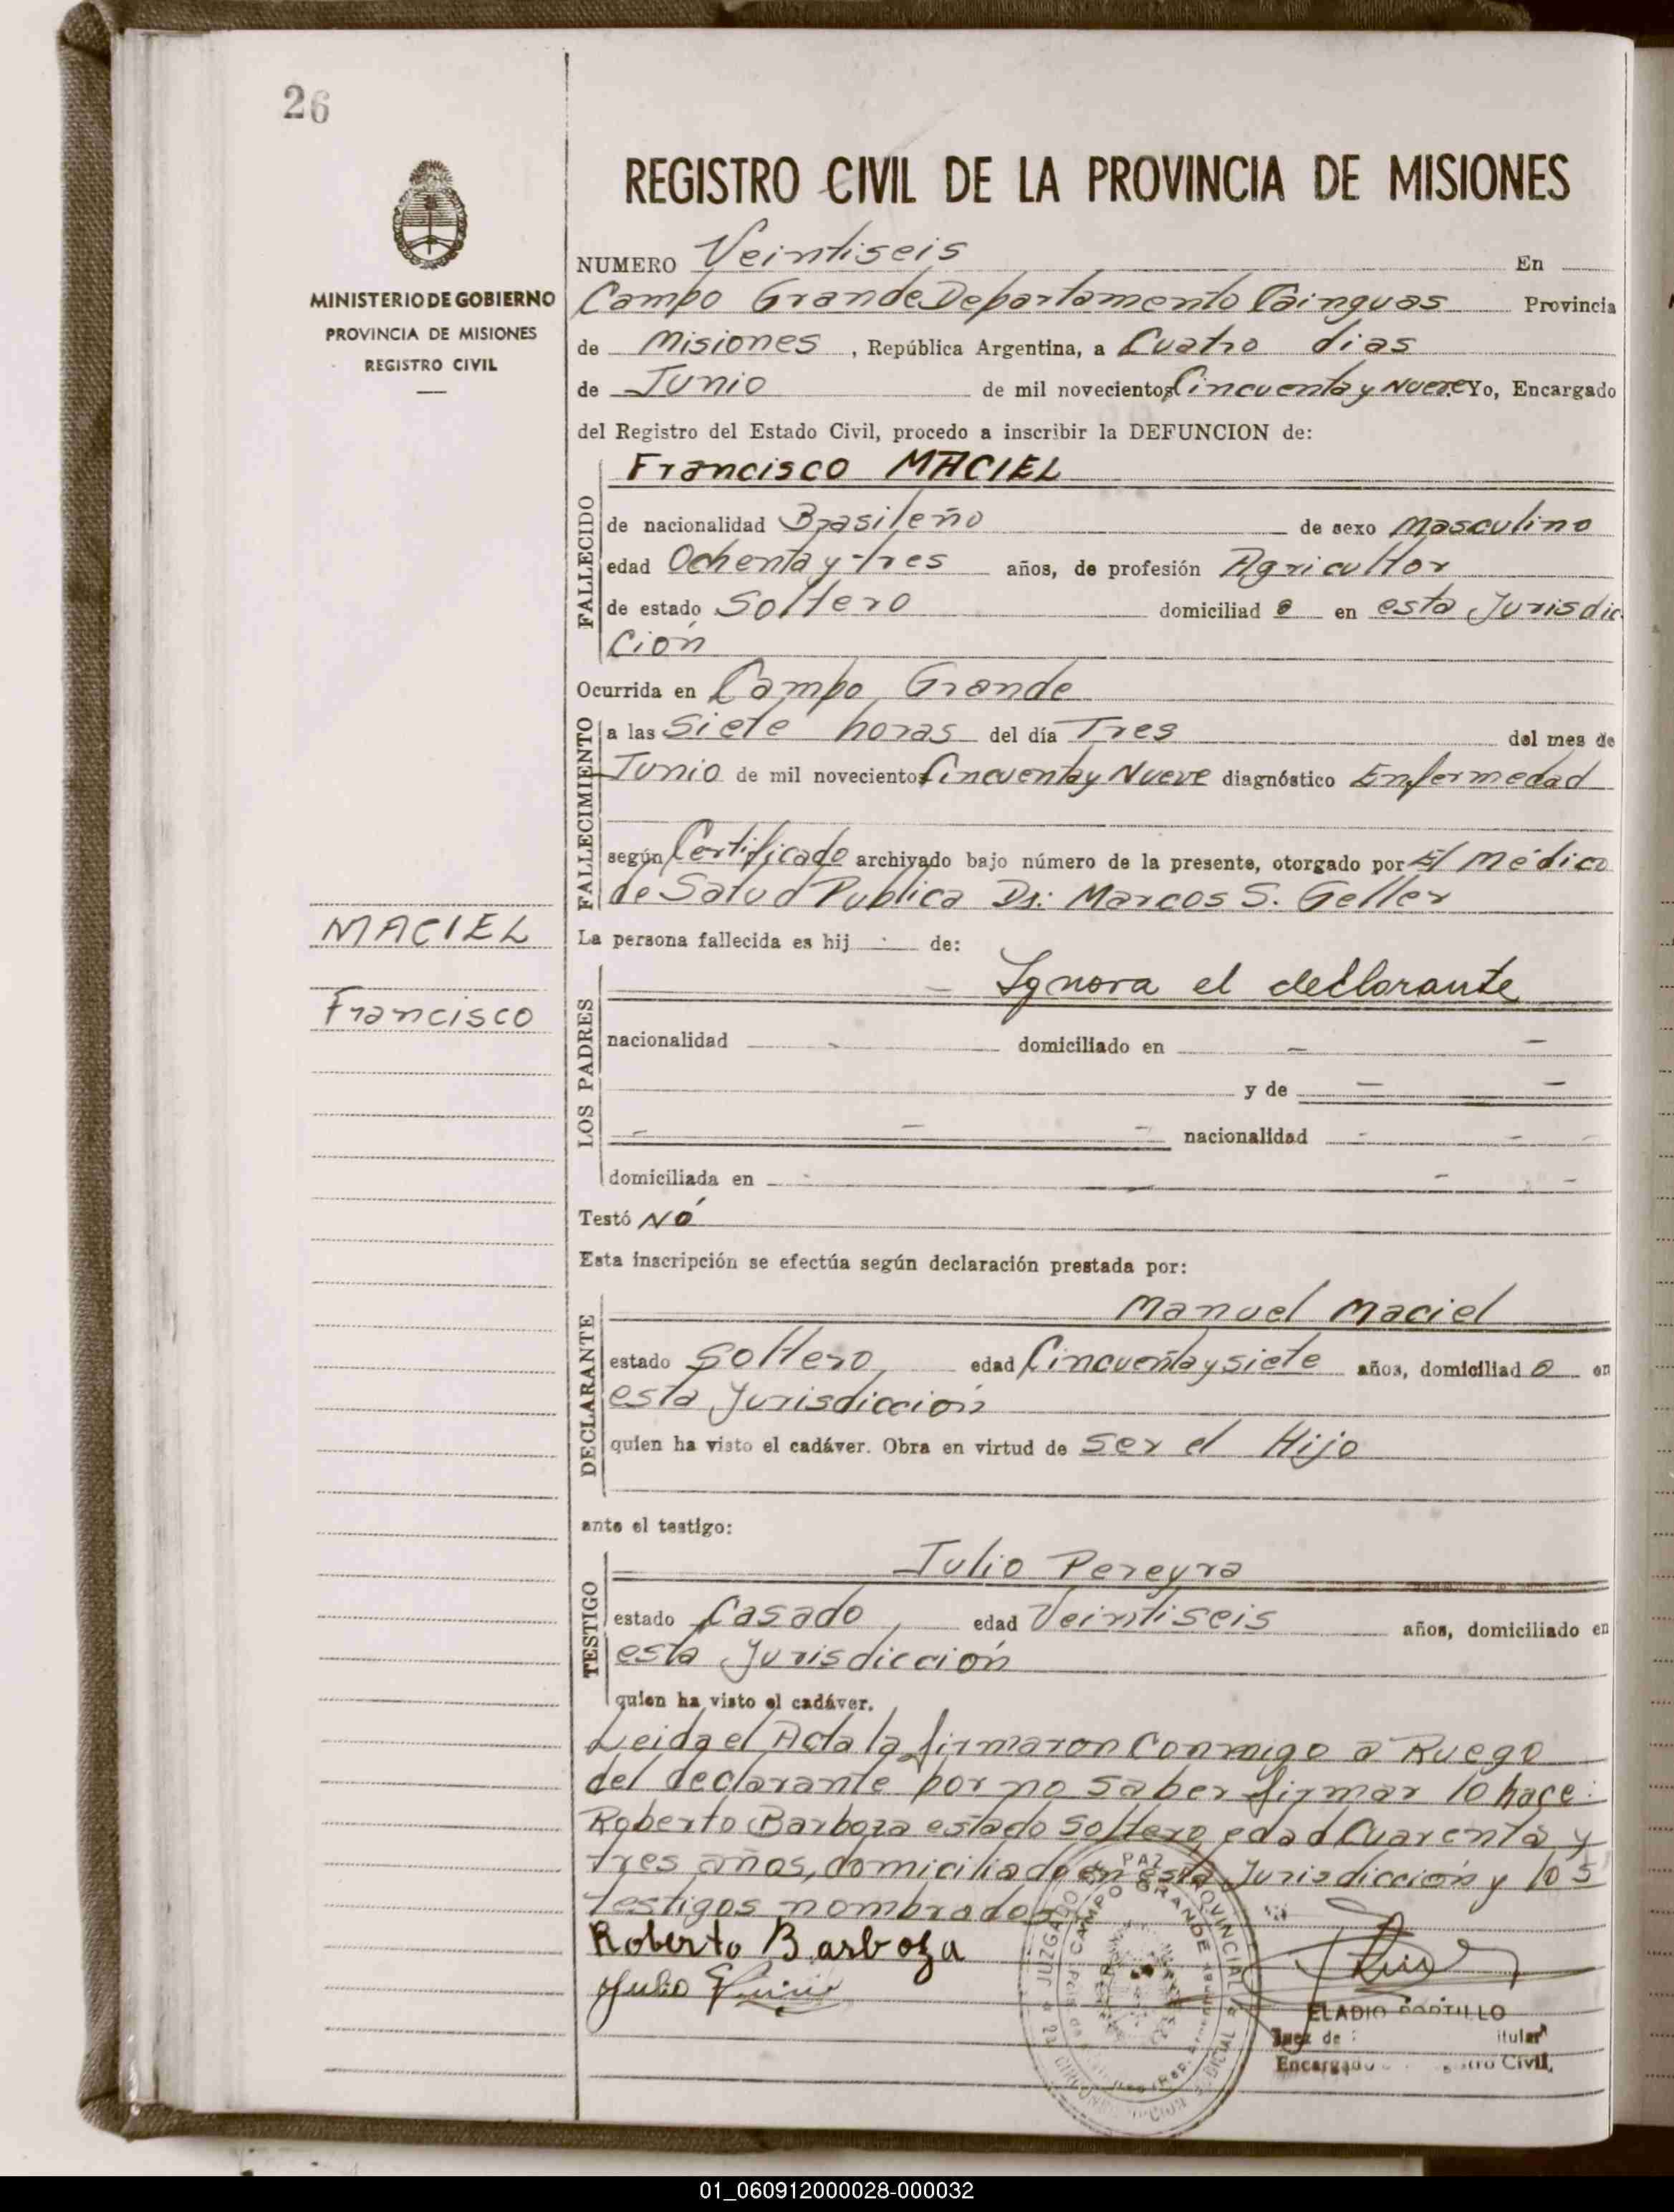 26
MINISTERIO DE GOBIERNO
PROVINCIA DE MISIONES
REGISTRO CIVIL
REGISTRO CIVIL DE LA PROVINCIA DE MISIONES
NUMERO Veintiseis En
Campo Grande Departamento Cainguas Provincia
de Misiones, República Argentina, a Cuatro dias
de Junio de mil novecientos Cincuenta y Nueve Yo, Encargado
del Registro del Estado Civil, procedo a inscribir la DEFUNCION de:
Francisco MACIEL
FALLECIDO
de nacionalidad Brasileño de sexo Masculino
edad Ochenta y tres años, de profesión Agricultor
de estado Soltero domiciliad o en esta Jurisdic
ción
Ocurrida en Campo Grande
FALLECIMIENTO
a las Siete horas del día Tres del mes de
Junio de mil novecientos Cincuenta y Nueve diagnóstico Enfermedad
según Certificado archivado bajo número de la presente, otorgado por El Médico
de Salud Publica Dr: Marcos S. Geller
MACIEL
Francisco
La persona fallecida es hij de:
LOS PADRES
Ignora el declarante
nacionalidad domiciliado en
y de
nacionalidad
domiciliada en
Testó NÓ
Esta inscripción se efectúa según declaración prestada por:
DECLARANTE
Manuel Maciel
estado Soltero edad Cincuenta y siete años, domiciliad o en
esta Jurisdicción
quien ha visto el cadáver. Obra en virtud de Ser el Hijo
ante el testigo:
TESTIGO
Julio Pereyra
estado Casado edad Veintiseis años, domiciliado en
esta Jurisdicción
quien ha visto el cadáver.
Leida el Acta la firmaron Conmigo a Ruego
del declarante por no saber firmar lo hace:
Roberto Barboza estado Soltero edad Cuarenta y
tres años, domiciliado en esta Jurisdicción y los
testigos nombrados
Roberto Barboza
Julio
JUZGADO PAZ PROVINCIAL
CAMPO GRANDE
ELADIO PORTILLO
Juez de
Encargado Civil.
01_060912000028-000032